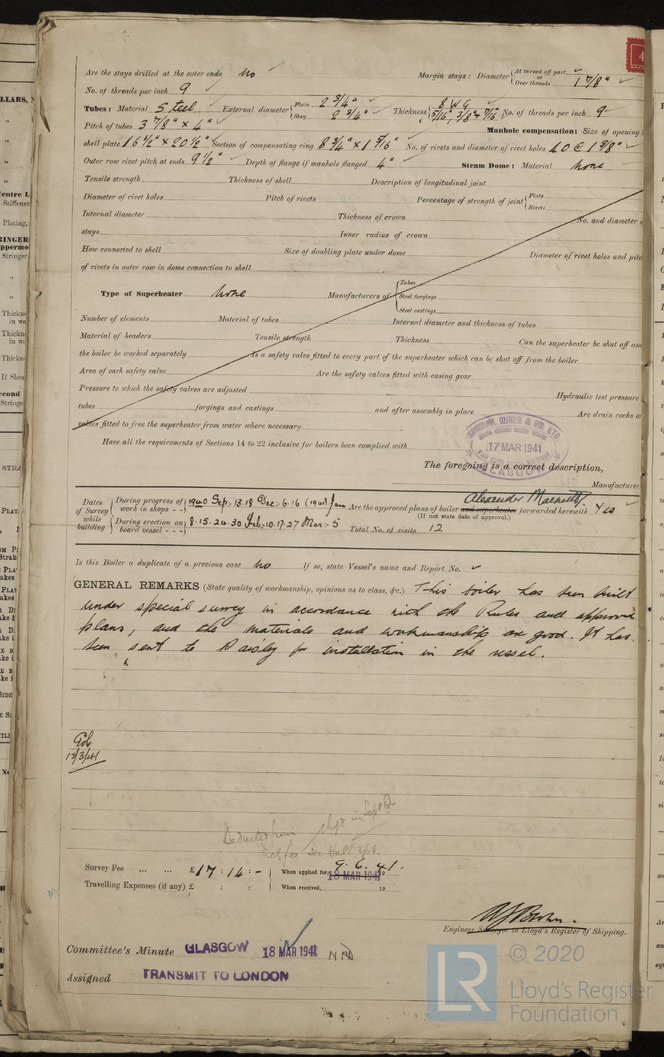 Are the stays drilled at the outer ends No Margin stays: Diameter { At turned off part or Over threads 1 7/8" ✓
No. of threads per inch 9
Tubes: Material Steel External diameter { Plain 2 3/4" Stay 2 3/4" Thickness { 8 W G 5/16", 3/8 & 7/16" No. of threads per inch 9
Pitch of tubes 3 7/8" × 4" Manhole compensation: Size of opening
shell plate 16 1/2" × 20 1/2" Section of compensating ring 8 3/4" × 1 5/16" No. of rivets and diameter of rivet holes 40 @ 1 3/8"
Outer row rivet pitch at ends 9 1/2" Depth of flange if manhole flanged 4" Steam Dome: Material None
Tensile strength Thickness of shell Description of longitudinal joint
Diameter of rivet holes Pitch of rivets Percentage of strength of joint { Plate Rivets
Internal diameter Thickness of crown No. and diameter
stays Inner radius of crown
How connected to shell Size of doubling plate under dome Diameter of rivet holes and
of rivets in outer row in dome connection to shell
Type of Superheater None Manufacturers of { Tubes Steel forgings Steel castings
Number of elements Material of tubes Internal diameter and thickness of tubes
Material of headers Tensile strength Thickness Can the superheater be shut off
the boiler be worked separately Is a safety valve fitted to every part of the superheater which can be shut off from the boiler
Area of each safety valve Are the safety valves fitted with easing gear
Pressure to which the safety valves are adjusted Hydraulic test pressure
tubes forgings and castings and after assembly in place Are drain cocks
valves fitted to free the superheater from water where necessary
Have all the requirements of Sections 14 to 22 inclusive for boilers been complied with
17 MAR 1941
GLASGOW
The foregoing is a correct description,
Manufacturer
Dates of Survey while building { During progress of work in shops - - 1940 Sep: 13.19 Dec: 6.16 (1941) Jan Are the approved plans of boiler and superheater forwarded herewith Yes
(If not state date of approval.)
During erection on board vessel - - - 8.15.24.30 Feb: 10.17.27 Mar: 5 Total No. of visits 12
Is this Boiler a duplicate of a previous case No If so, state Vessel's name and Report No. ✓
GENERAL REMARKS (State quality of workmanship, opinions as to class, &c.) This boiler has been built
under special survey in accordance with the Rules and approved
plans, and the materials and workmanship are good. It has
been sent to Paisley for installation in the vessel.
Survey Fee ... ... £ 17 : 14 : - When applied for 9. 6. 41. 18 MAR 1941 19
Travelling Expenses (if any) £ : : When received, 19
Engineer Surveyor to Lloyd's Register of Shipping.
Committee's Minute GLASGOW 18 MAR 1941
Assigned TRANSMIT TO LONDON
LR © 2020
Lloyd's Register
Foundation